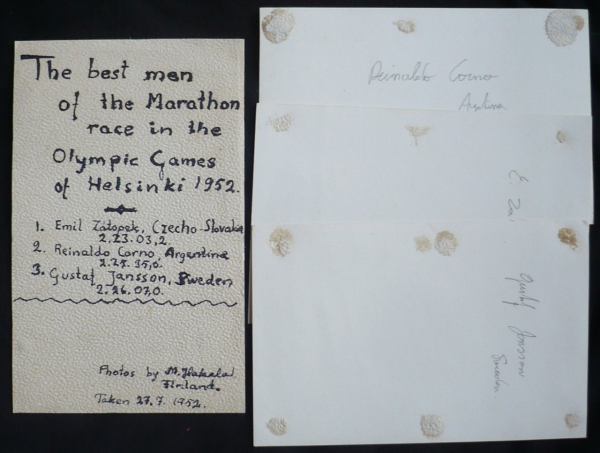 The best men
of the Marathon
race in the
Olympic Games
of Helsinki 1952.
1. Emil Zatopek, Czecho-Slovakia
2.23.03,2.
2. Reinaldo Corno Argentina
2.25.35,0.
3. Gustaf Jansson, Sweden
2.26.07,0.
Photos by
Finland.
Taken 27.7.1952.
Reinaldo Corno
E. Za
Gustaf Jansson
Sweden